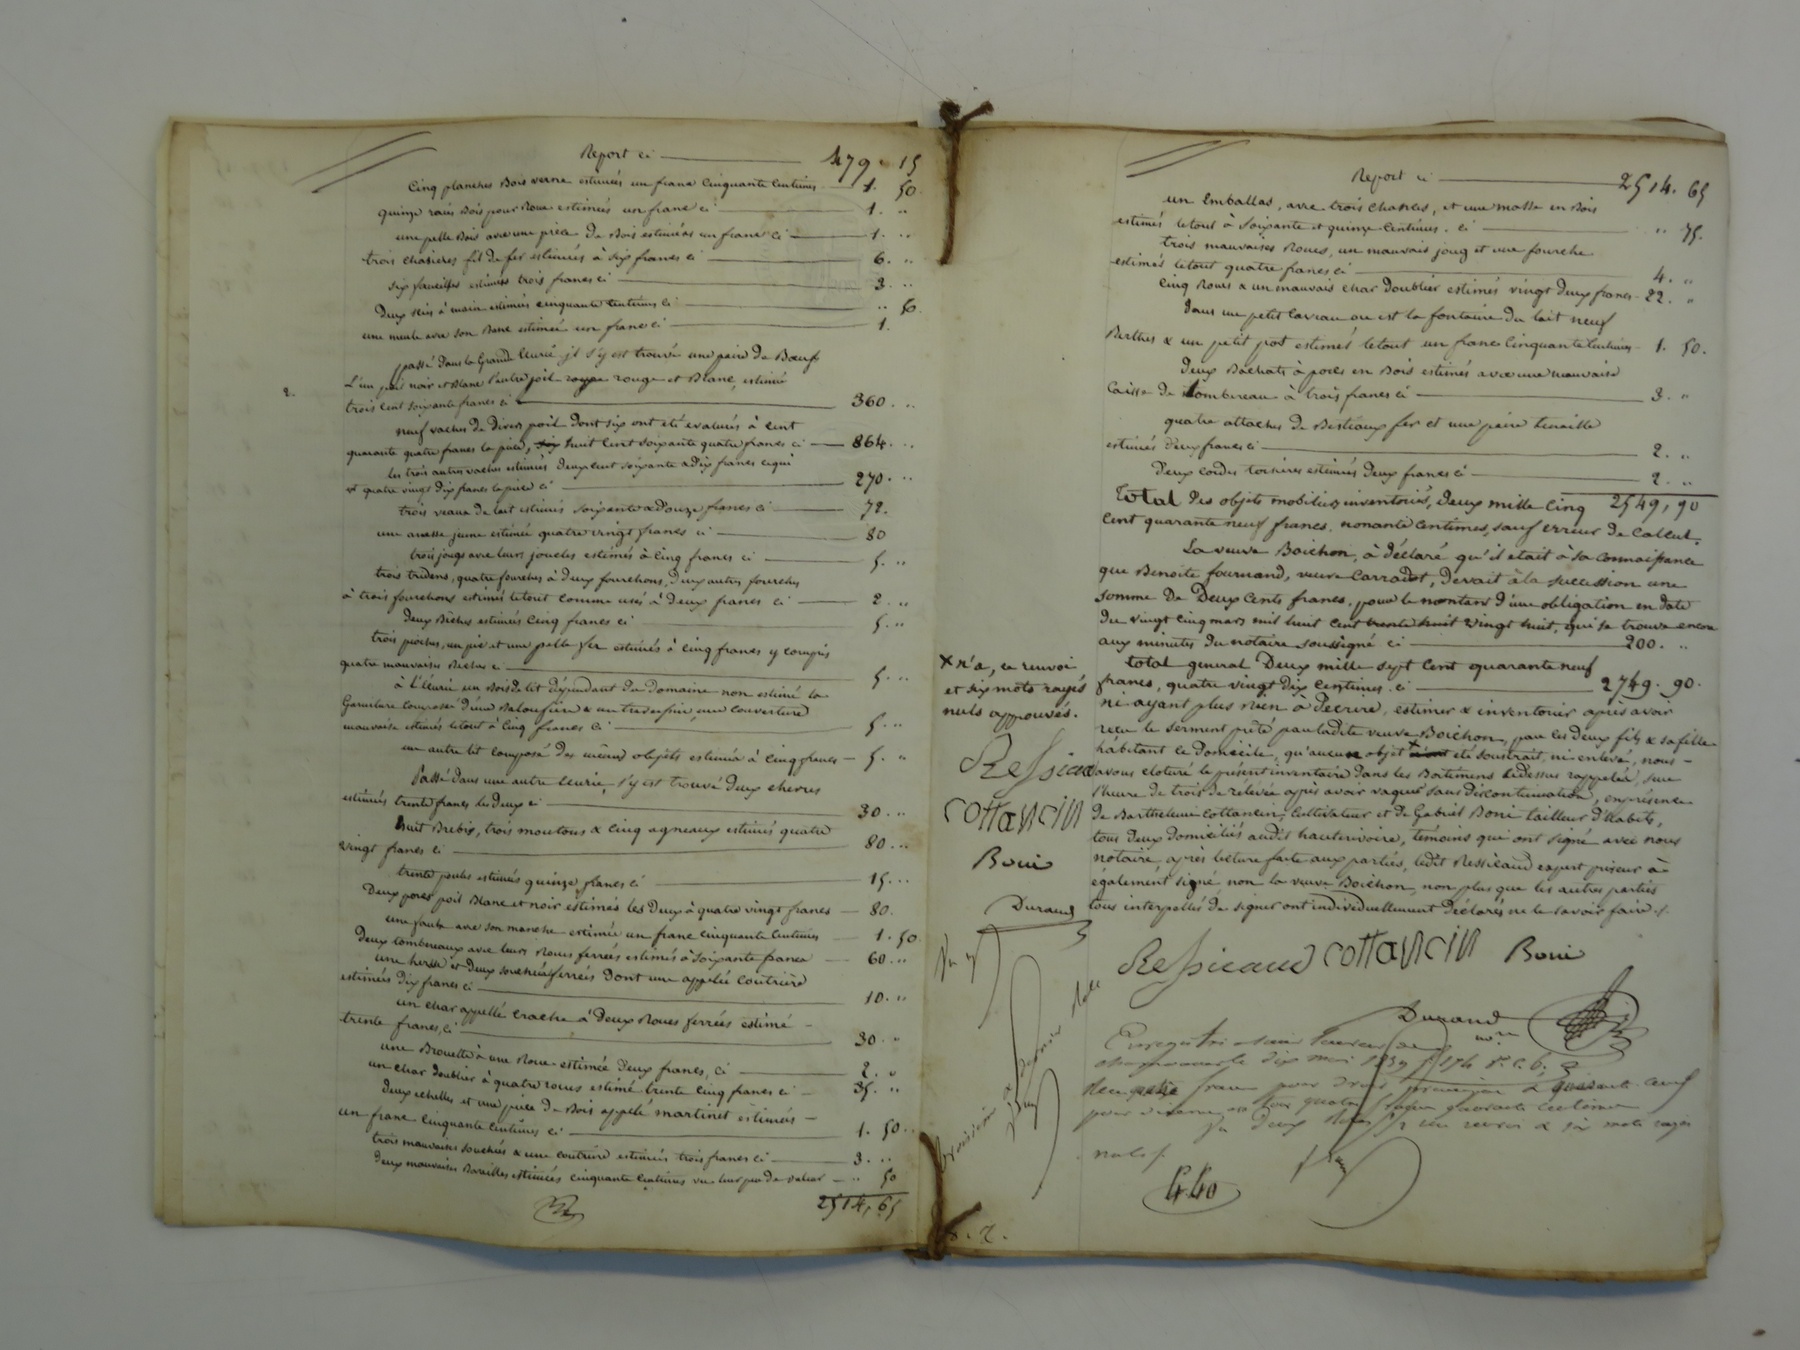 Report ci 479. 15
Cinq planches Bois verne estimées un franc Cinquante Centimes 1. 50.
quinze rais Bois pour Roue estimés un franc ci 1. "
une pelle Bois avec une pièce de Bois estimées un franc ci 1. "
trois chasières fil de fer estimées à Six francs ci 6. "
six faucilles estimées trois francs ci 3. "
Deux scies à main estimées cinquante Centimes ci " 50
une meule avec son Banc estimée un franc ci 1.
passé dans la Grande Ecurie, il s'y est trouvé une paire de Bœufs
L'un poil noir et Blanc l'autre poil rouge et Blanc, estimés
2.
trois cent soixante francs ci 360. "
neuf vaches de divers poil dont six ont été évaluées à Cent
quarante quatre francs la pièce, huit Cent soixante quatre francs ci 864. "
les trois autres vaches estimées deux cent soixante & Dix francs ce qui
est quatre vingt dix francs la pièce ci 270. "
trois veaux de lait estimés Soixante & Douze francs ci 72.
une anesse jeune estimée quatre vingt francs ci 80
trois jougs avec leurs joucles estimés à Cinq francs ci 5. "
trois tridens, quatre fourches à deux fourchons, Deux autres fourches
à trois fourchons estimés le tout comme usés à Deux francs ci 2. "
Deux Bêches estimées Cinq francs ci 5. "
trois pioches, un pic et une pelle fer estimés à cinq francs y compris
quatre mauvaises Haches ci 5. "
à l'Ecurie un Bois de lit dépendant du Domaine non estimé la
Garniture composée d'une Baloufière & un traversin, une couverture
mauvaise estimés le tout à Cinq francs ci 5. "
un autre lit composé des mêmes objets estimés à cinq francs 5. "
Passé dans une autre Ecurie, s'y est trouvé deux chevres
estimées trente francs les deux ci 30. "
huit Brebis, trois moutons & Cinq agneaux estimés quatre
vingt francs ci 80. "
trente poules estimées quinze francs ci 15. "
Deux porcs poil Blanc et noir estimés les Deux à quatre vingt francs 80.
une faulx avec son manche estimée un franc cinquante Centimes 1. 50
Deux tombereaux avec leurs Roues ferrées estimés à Soixante francs 60. "
une herse et Deux ferrées Dont une appelée Coutrière
estimées dix francs ci 10. "
un char appellé crache à Deux Roues ferrées estimé
trente francs, ci 30. "
une Brouette à une Roue estimée deux francs, ci 2. "
un char Doublier à quatre roues estimé trente Cinq francs ci 35. "
Deux echelles et une pièce de Bois appelé martinet estimées
un franc Cinquante Centimes ci 1. 50.
trois mauvaises & une coutrière estimées trois francs ci 3. "
deux mauvaises Barailles estimées cinquante Centimes vu leur peu de valeur " 50
2514, 65
Report ci 2514. 65
un Emballas, avec trois chasses, et une masse en Bois
estimés le tout à Soixante et quinze Centimes. ci " 75.
trois mauvaises Roues, un mauvais joug et une fourche
estimés le tout quatre francs ci 4. "
Cinq Roues & un mauvais char Doublier estimés vingt deux francs 22. "
Dans un petit Caveau ou est la fontaine du lait neuf
Berthes & un petit pot estimés le tout un franc Cinquante Centimes 1. 50.
Deux Bachats à porcs en Bois estimés avec une mauvaise
Caisse de tombereau à trois francs ci 3. "
quatre attaches de Bestiaux fer et une paire tenaille
estimées deux francs ci 2. "
Deux cordes estimées Deux francs ci 2. "
Total des objets mobiliers inventoriés, Deux mille Cinq 2549, 90
Cent quarante neuf francs, nonante centimes, sauf erreur de Calcul.
La veuve Boichon, à déclaré qu'il etait à sa connaissance
que Benoite fournand, veuve Carradot, Devait à la succession une
somme de Deux Cents francs, pour le montant d'une obligation en date
du vingt cinq mars mil huit Cent trente huit vingt huit, qui se trouve encore
aux minutes du notaire soussigné ci 200. "
total general Deux mille sept Cent quarante neuf
francs, quatre vingt Dix Centimes. ci 2749. 90.
ni ayant plus Rien à Décrire, estimer & inventorier après avoir
reçu le serment prêté par ladite veuve Boichon, par les deux fils & sa fille
habitant le Domicile, qu'aucun objet x été soustrait, ni enlevé, nous
avons cloturé le présent inventaire dans les Batimens cidessus rappelés, sur
l'heure de trois de relevée après avoir vaqué sans discontinuation, en présence
de Barthelemi Cottancin, Cultivateur et de Gabriel Boni tailleur d'habits,
tous deux domiciliés audit hauterivoire, témoins qui ont signé avec nous
notaire, après lecture faite aux parties, ledit Ressicaud expert priseur à
également signé non la veuve Boichon, non plus que les autres parties
tous interpellés de signer ont individuellement Déclarés ne le savoir faire.
x n'a, ce renvoi
et six mots rayés
nuls approuvés.
Ressicaud
Cottancin
Boni
Durand
Ressicaud Cottancin Boni
Durand
nre
Enregistré à
le dix mai 1839 f. 174 r. C. 6.
francs pour
quarante centimes
deux un renvoi & six mots rayés
nuls.
440